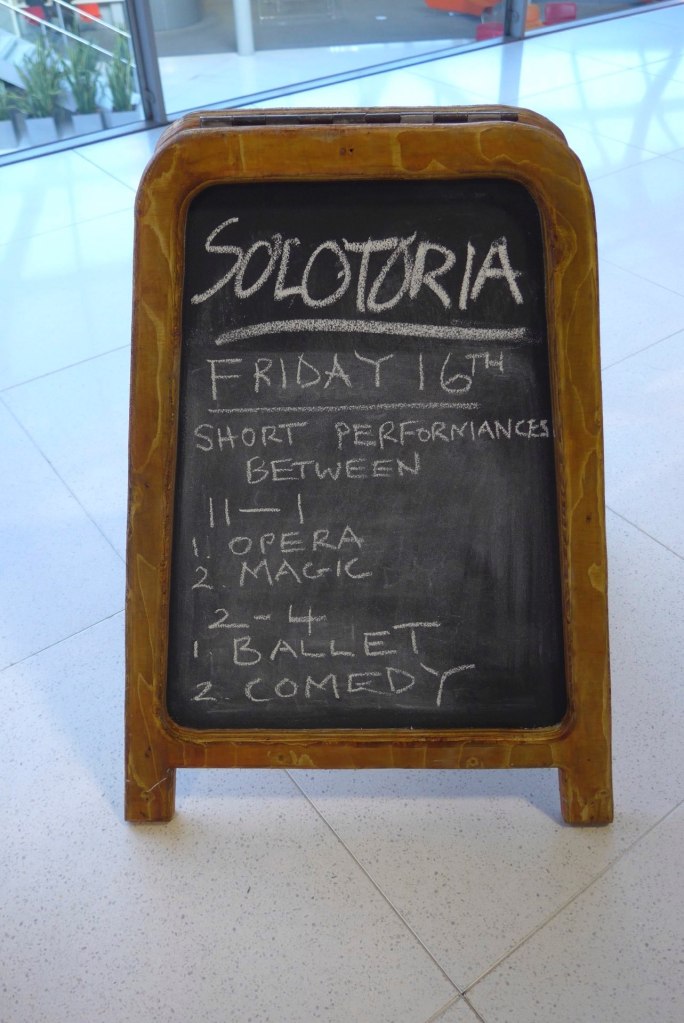 SOLOTORIA
FRIDAY 16TH
SHORT PERFORMANCES
BETWEEN
11-1
1. OPERA
2. MAGIC
2-4
1. BALLET
2. COMEDY